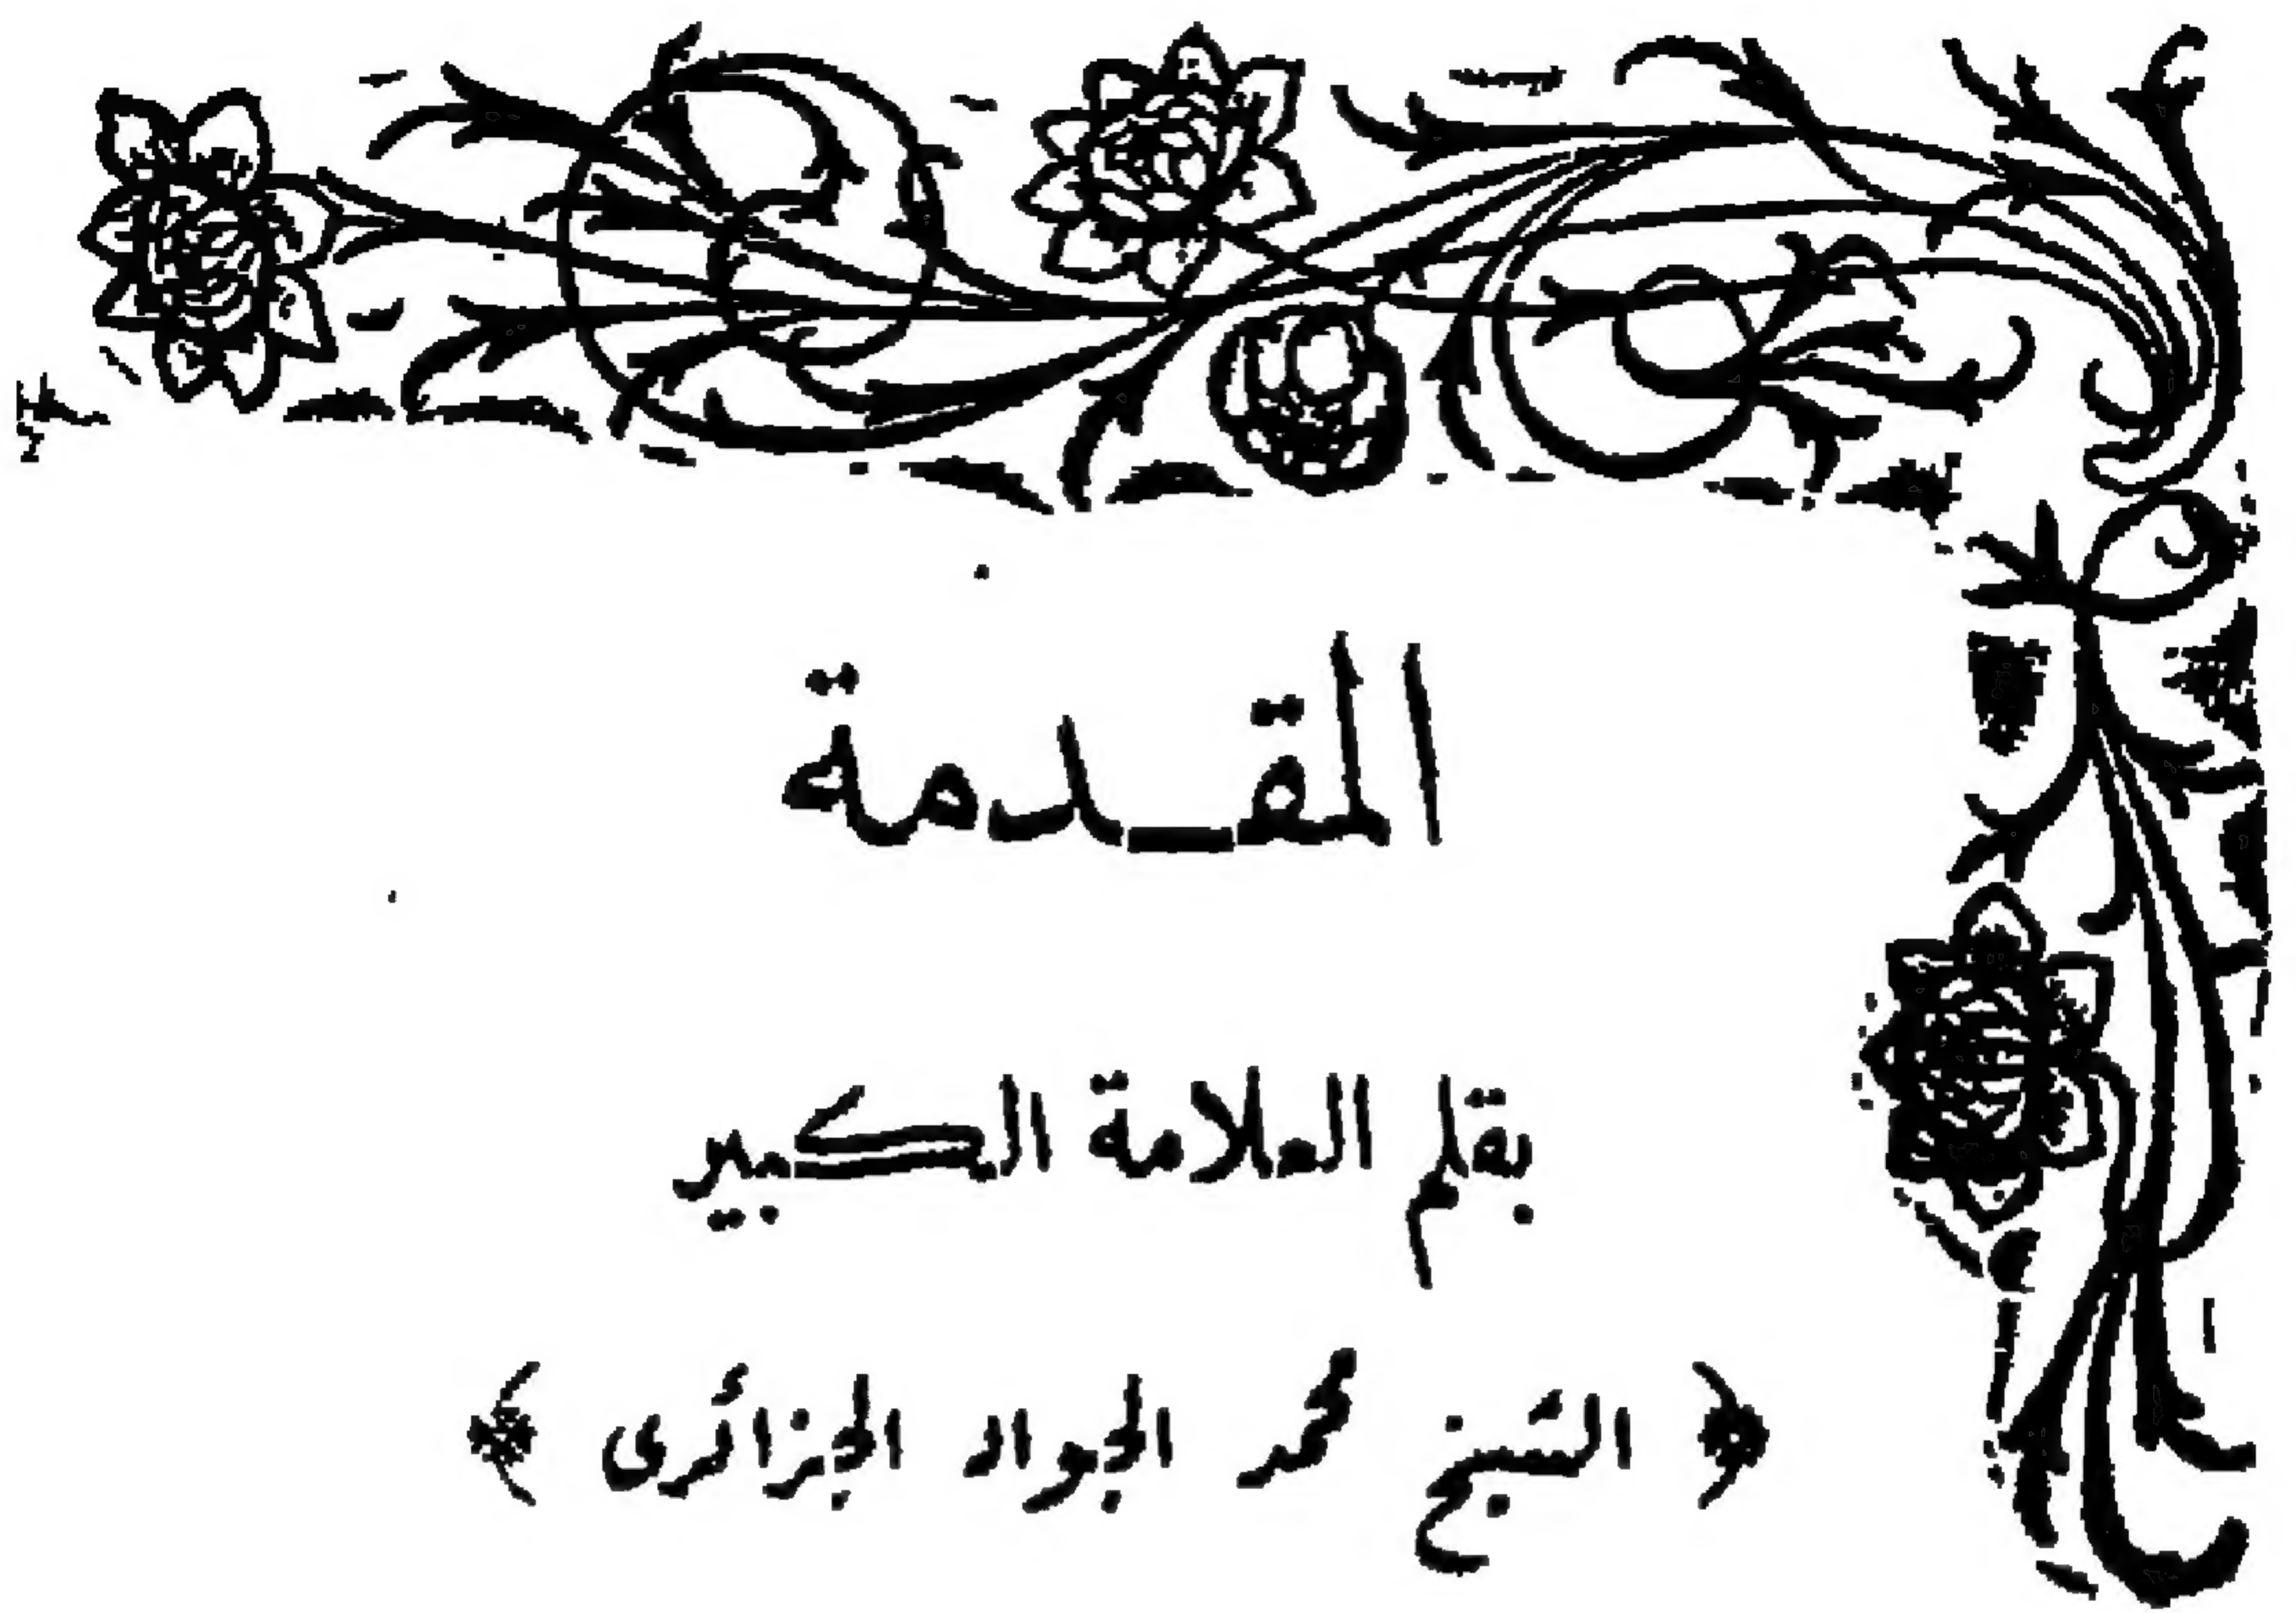 المقـدمة
بقلم العلامة الكبير
﴿ الشيخ محمد الجواد الجزائرى ﴾